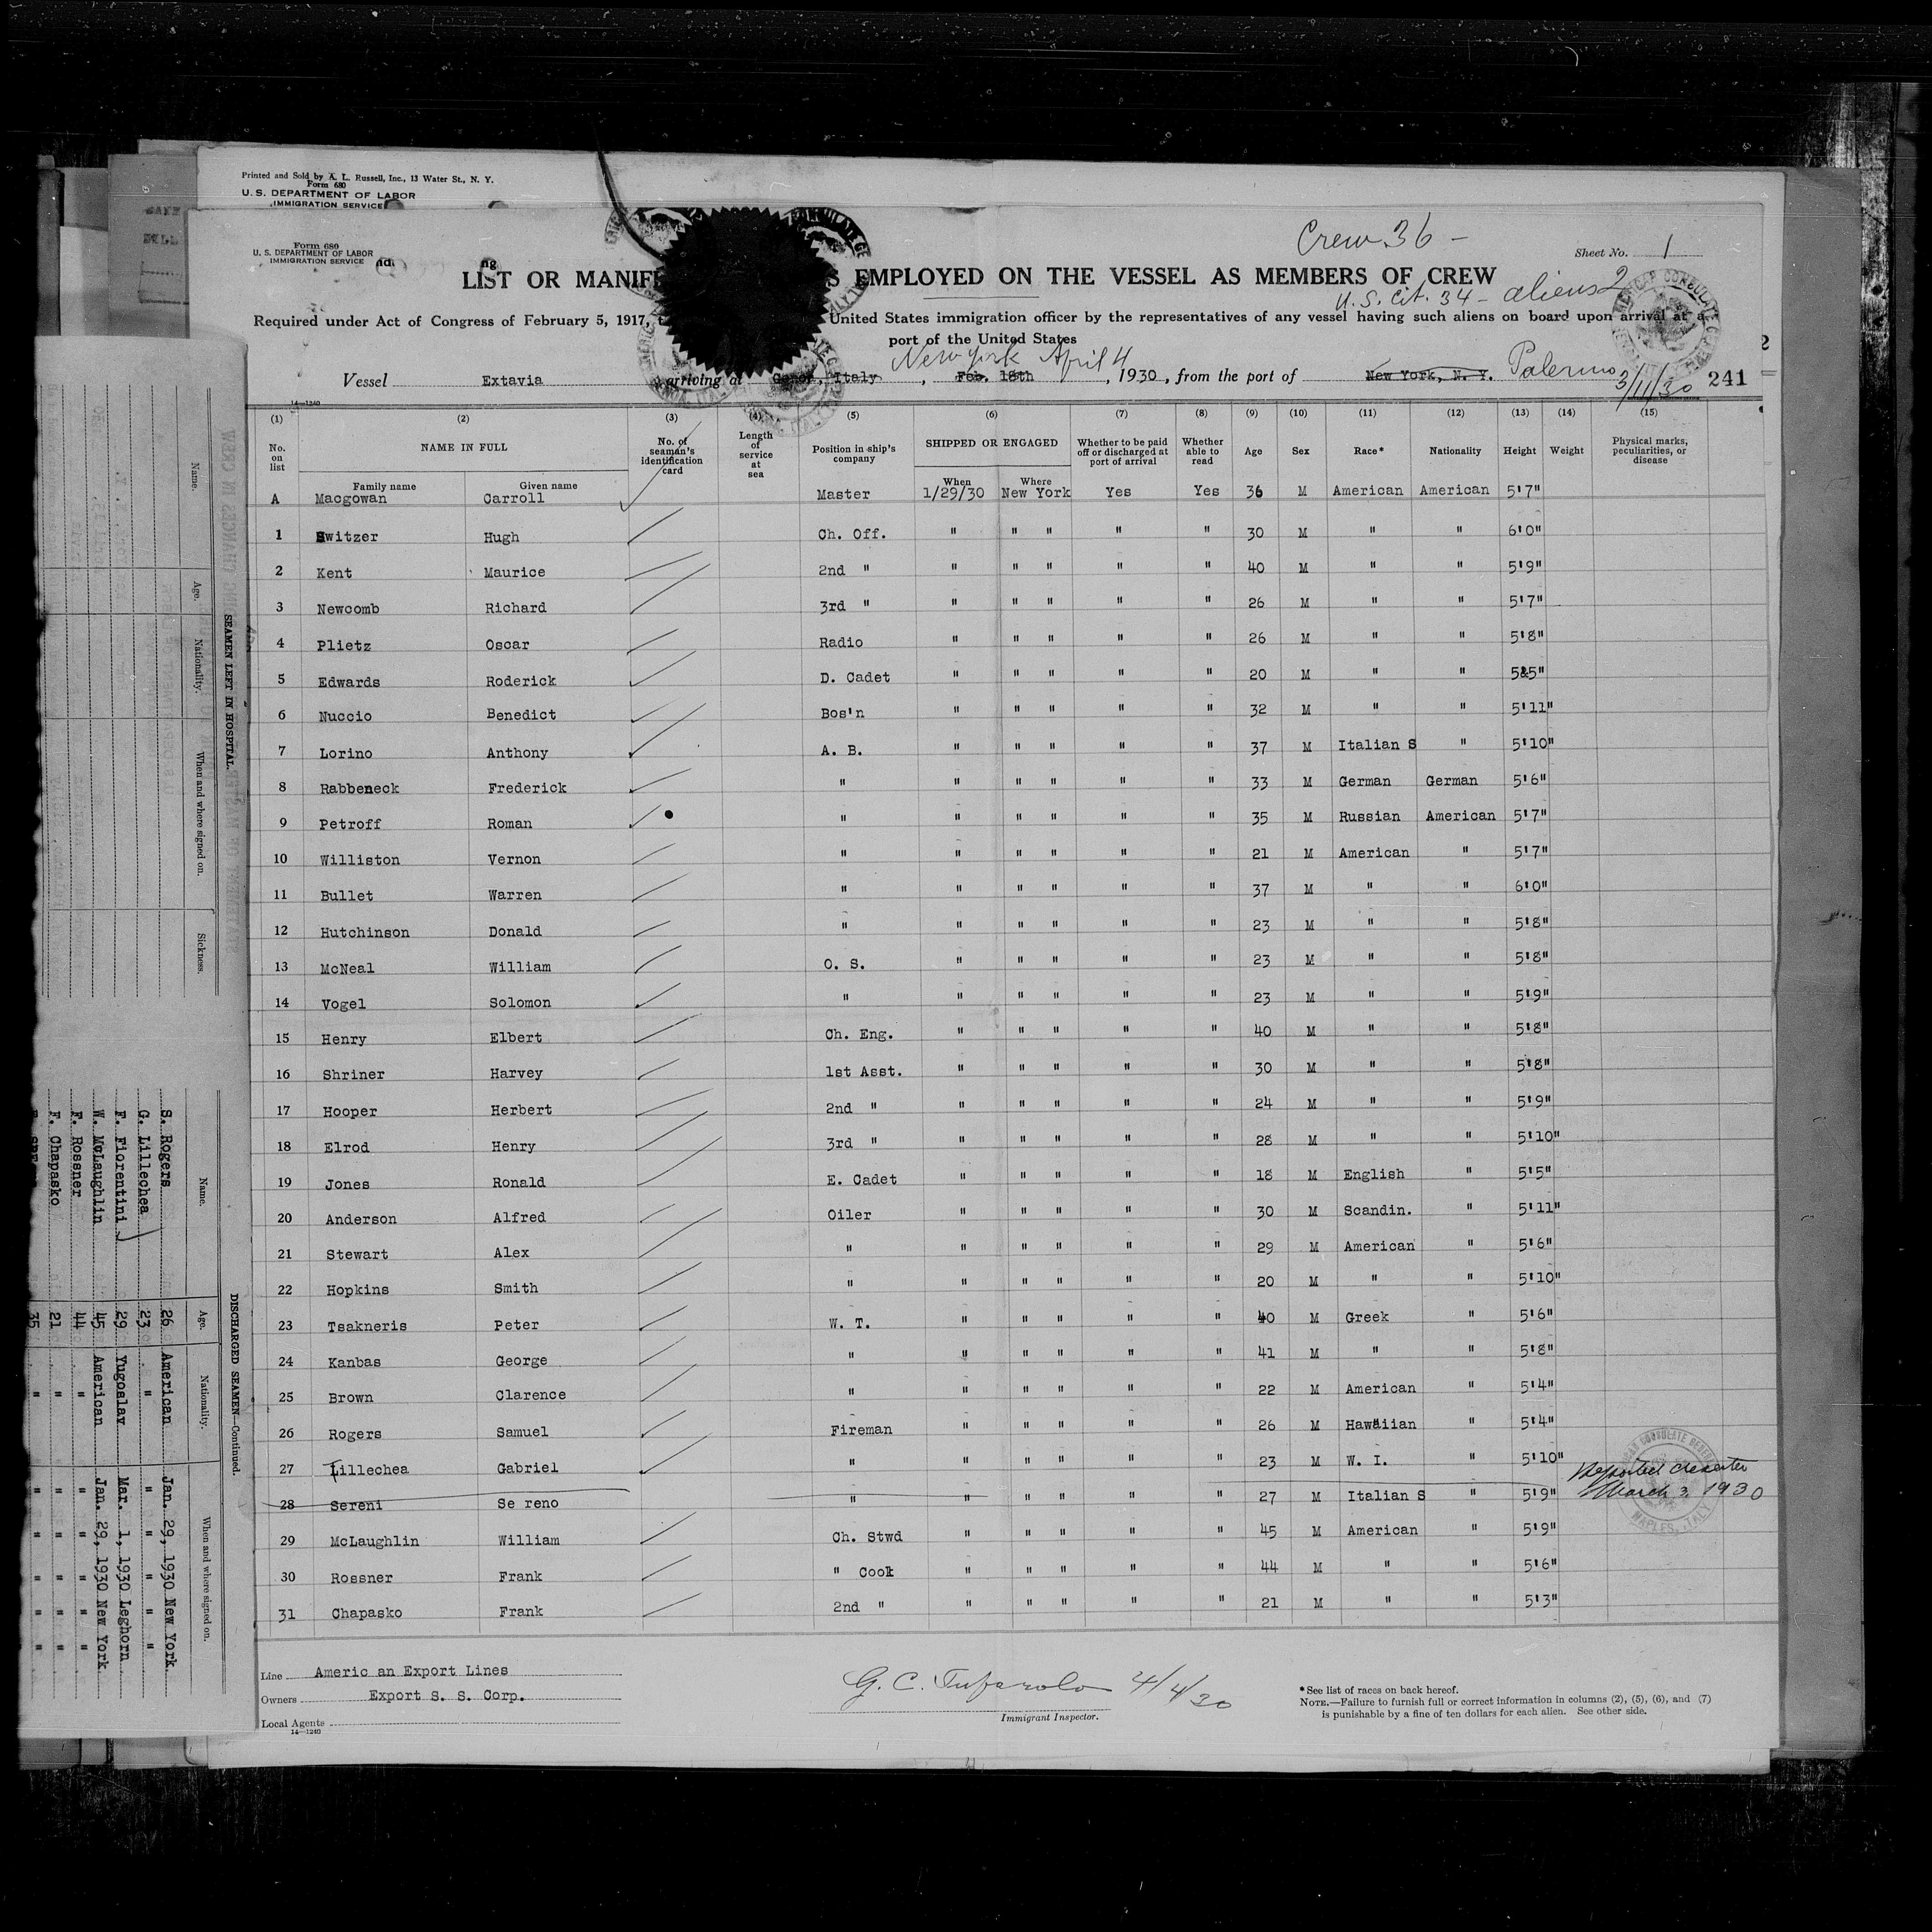 Printed and Sold by A. L. Russell, Inc., 13 Water St., N. Y.
Form 680
U. S. DEPARTMENT OF LABOR
IMMIGRATION SERVICE
Form 680
U. S. DEPARTMENT OF LABOR
IMMIGRATION SERVICE
Crew 36 -
Sheet No. 1
LIST OR MANIF S EMPLOYED ON THE VESSEL AS MEMBERS OF CREW
U. S. Cit. 34 - aliens 2
Required under Act of Congress of February 5, 1917, United States immigration officer by the representatives of any vessel having such aliens on board upon arrival at a
port of the United States
New York April 4
Vessel Extavia arriving at Genoa, Italy, Feb. 18th, 1930, from the port of New York, N. Y. Palermo 3/11/30 241
14—1240
(1) (2) (3) (4) (5) (6) (7) (8) (9) (10) (11) (12) (13) (14) (15)
No. on list NAME IN FULL No. of seaman's identification card Length of service at sea Position in ship's company SHIPPED OR ENGAGED Whether to be paid off or discharged at port of arrival Whether able to read Age Sex Race* Nationality Height Weight Physical marks, peculiarities, or disease
Family name Given name When Where
A Macgowan Carroll Master 1/29/30 New York Yes Yes 36 M American American 5'7"
1 Switzer Hugh Ch. Off. " " " " " 30 M " " 6'0"
2 Kent Maurice 2nd " " " " " " 40 M " " 5'9"
3 Newcomb Richard 3rd " " " " " " 26 M " " 5'7"
4 Plietz Oscar Radio " " " " " 26 M " " 5'8"
5 Edwards Roderick D. Cadet " " " " " 20 M " " 5'5"
6 Nuccio Benedict Bos'n " " " " " 32 M " " 5'11"
7 Lorino Anthony A. B. " " " " " 37 M Italian S " 5'10"
8 Rabbeneck Frederick " " " " " " 33 M German German 5'6"
9 Petroff Roman " " " " " " 35 M Russian American 5'7"
10 Williston Vernon " " " " " " 21 M American " 5'7"
11 Bullet Warren " " " " " " 37 M " " 6'0"
12 Hutchinson Donald " " " " " " 23 M " " 5'8"
13 McNeal William O. S. " " " " " 23 M " " 5'8"
14 Vogel Solomon " " " " " " 23 M " " 5'9"
15 Henry Elbert Ch. Eng. " " " " " 40 M " " 5'8"
16 Shriner Harvey 1st Asst. " " " " " 30 M " " 5'8"
17 Hooper Herbert 2nd " " " " " " 24 M " " 5'9"
18 Elrod Henry 3rd " " " " " " 28 M " " 5'10"
19 Jones Ronald E. Cadet " " " " " 18 M English " 5'5"
20 Anderson Alfred Oiler " " " " " 30 M Scandin. " 5'11"
21 Stewart Alex " " " " " " 29 M American " 5'6"
22 Hopkins Smith " " " " " " 20 M " " 5'10"
23 Tsakneris Peter W. T. " " " " " 40 M Greek " 5'6"
24 Kanbas George " " " " " " 41 M " " 5'8"
25 Brown Clarence " " " " " " 22 M American " 5'4"
26 Rogers Samuel Fireman " " " " " 26 M Hawaiian " 5'4"
27 Lillechea Gabriel " " " " " " 23 M W. I. " 5'10"
28 Sereni Se reno " " " " " " 27 M Italian S " 5'9" Reported deserter March 3, 1930
29 McLaughlin William Ch. Stwd " " " " " 45 M American " 5'9"
30 Rossner Frank " Cook " " " " " 44 M " " 5'6"
31 Chapasko Frank 2nd " " " " " " 21 M " " 5'3"
NAPLES, ITALY
Line Americ an Export Lines
Owners Export S. S. Corp.
Local Agents
14—1240
G. C. Tufarolo 4/4/30
Immigrant Inspector.
*See list of races on back hereof.
NOTE.—Failure to furnish full or correct information in columns (2), (5), (6), and (7)
is punishable by a fine of ten dollars for each alien. See other side.
SEAMEN LEFT IN HOSPITAL.
Name. Age. Nationality. When and where signed on. Sickness.
DISCHARGED SEAMEN—Continued.
Name. Age. Nationality. When and where signed on.
S. Rogers 26 American Jan. 29, 1930 New York
G. Lillechea 23 " " " " "
F. Fiorentini 29 Yugoslav Mar. 1, 1930 Leghorn
W. McLaughlin 45 American Jan. 29, 1930 New York
F. Rossner 44 " " " " "
F. Chapasko 21 " " " " "
35 " " " " "